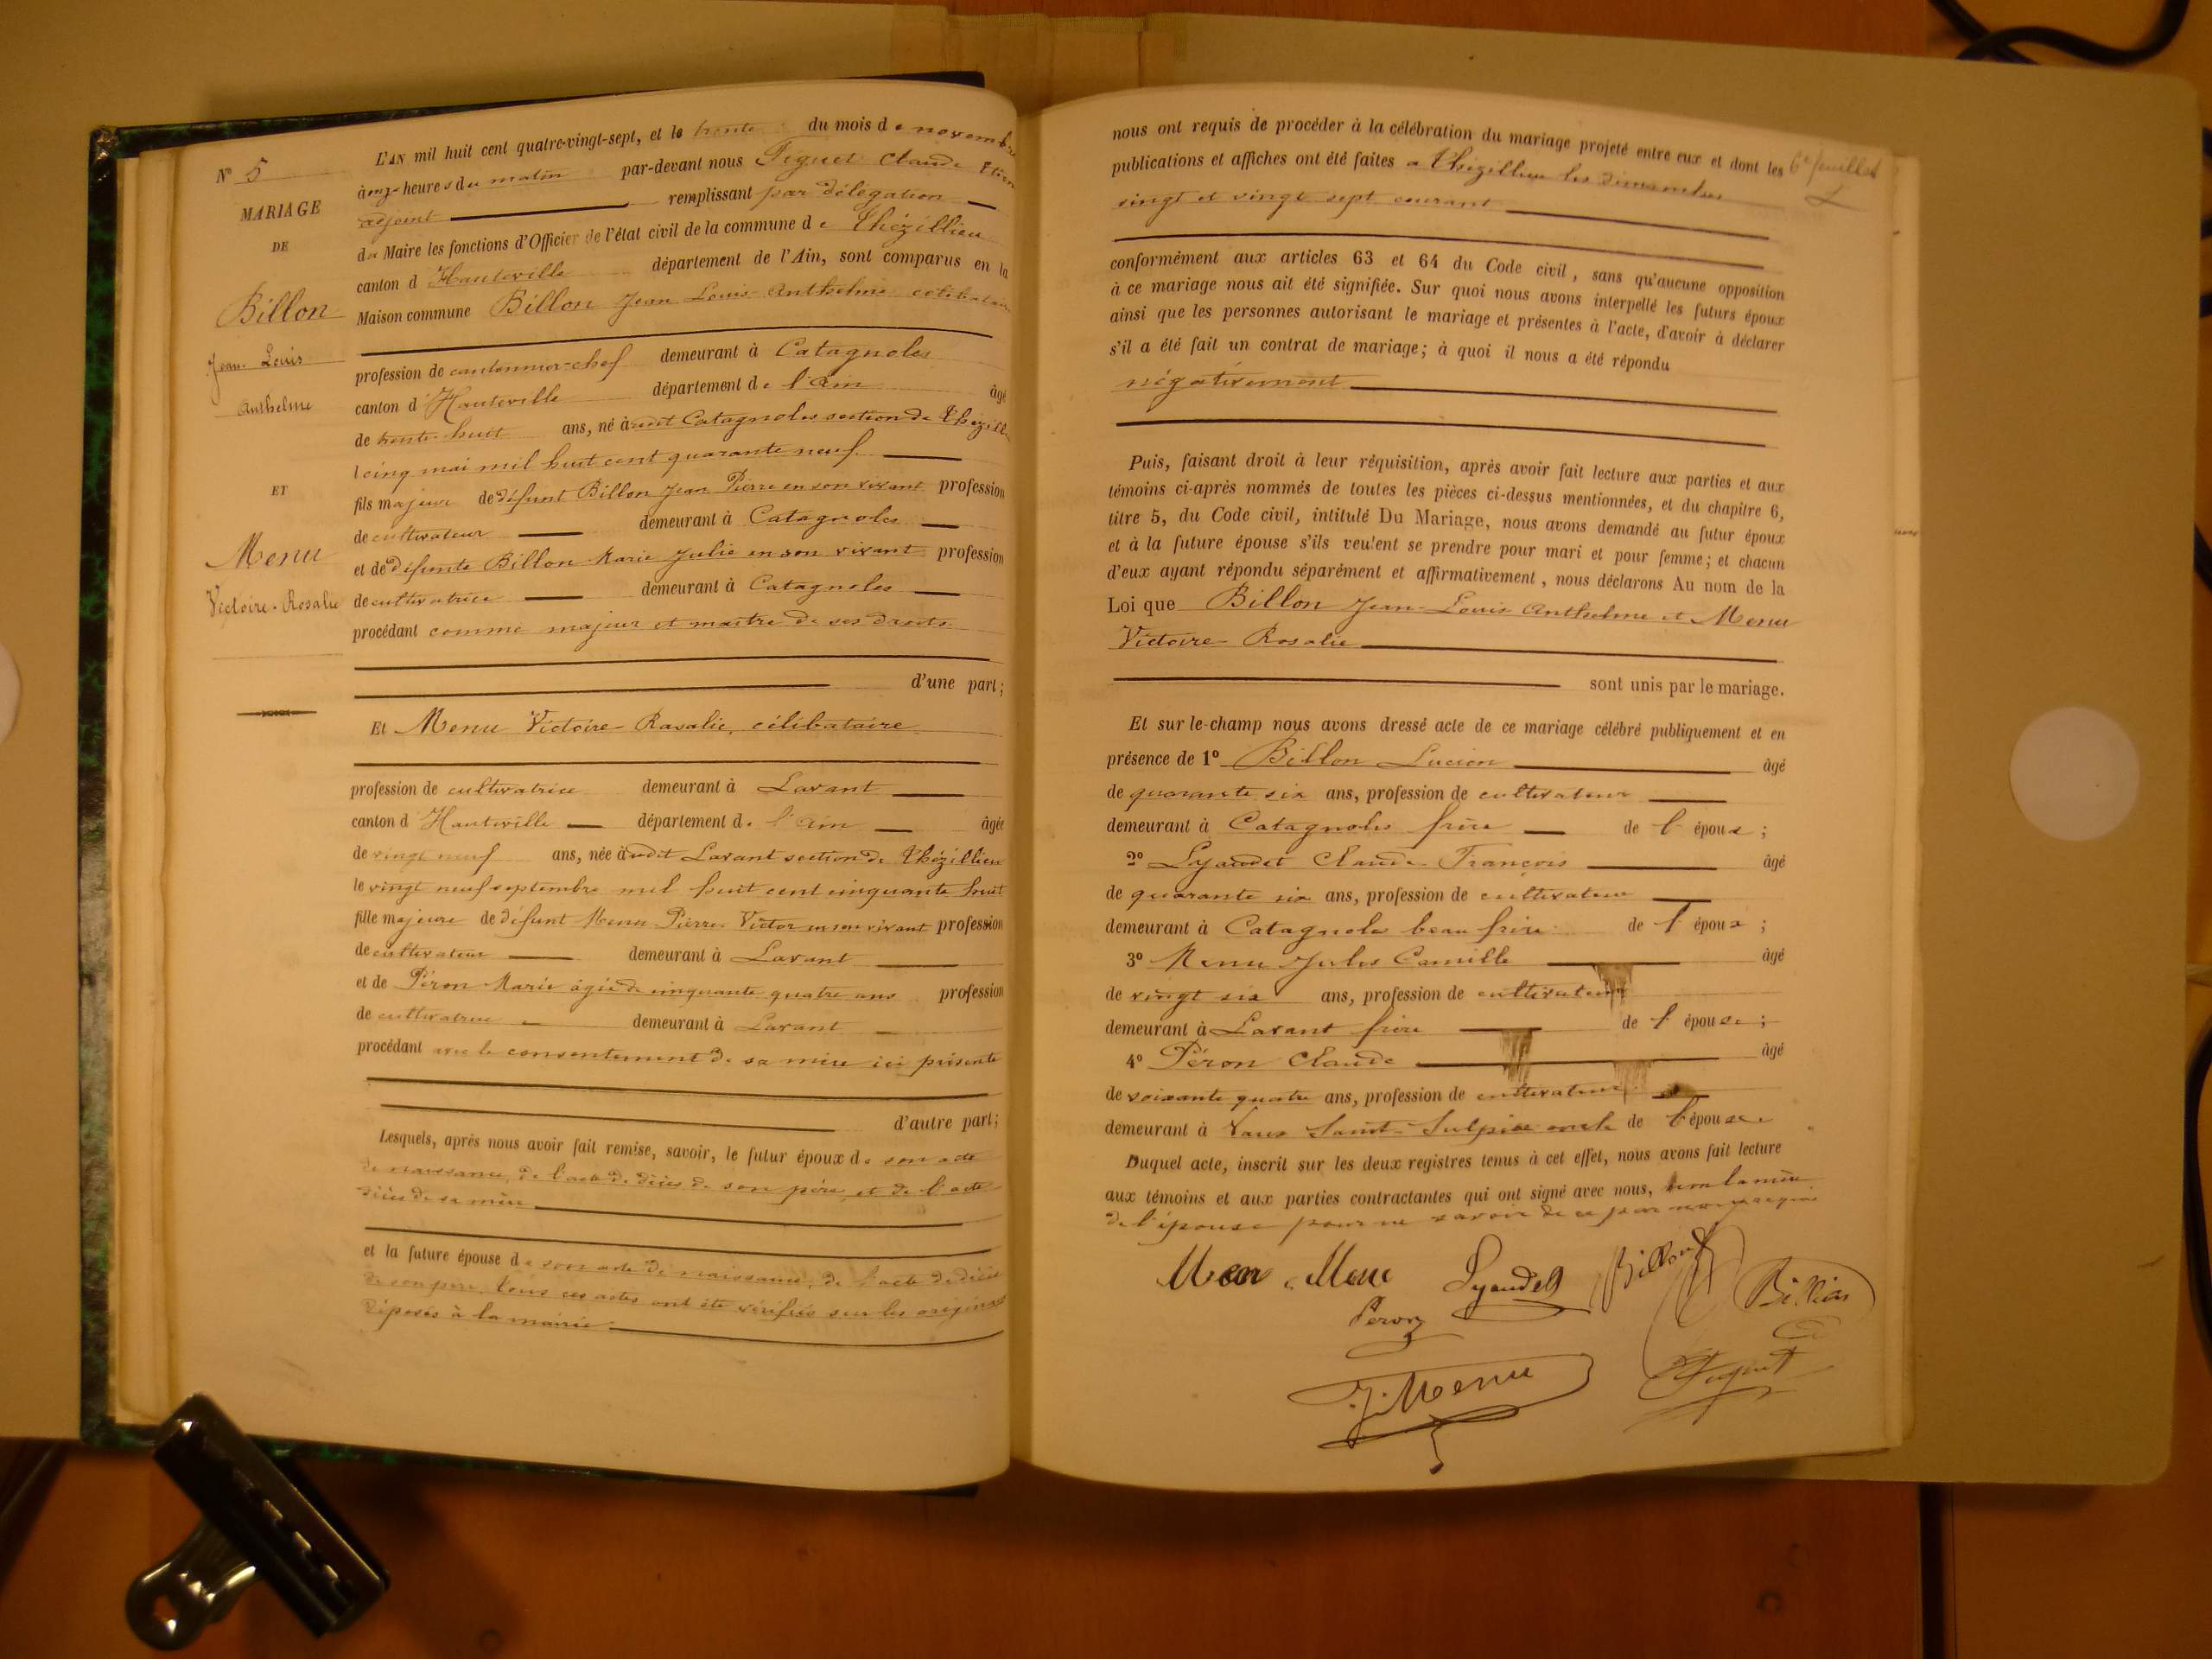 N° 5
MARIAGE
DE
Billon
Jean Louis
Anthelme
ET
Menu
Victoire-Rosalie
L'AN mil huit cent quatre-vingt-sept, et le trente du mois de novembre
à onze heures du matin par-devant nous Piguet Claude
adjoint remplissant par délégation
du Maire les fonctions d'Officier de l'état civil de la commune de Thézillieu
canton d Hauteville département de l'Ain, sont comparus en la
Maison commune Billon Jean Louis Anthelme célibataire
profession de cantonnier-chef demeurant à Catagnoles
canton d Hauteville département de l'Ain âgé
de trente-huit ans, né audit Catagnoles section de Thézill
l cinq mai mil huit cent quarante neuf
fils majeur de défunt Billon Jean Pierre en son vivant profession
de cultivateur demeurant à Catagnoles
et de défunte Billon Marie Julie en son vivant profession
de cultivatrice demeurant à Catagnoles
procédant comme majeur et maître de ses droits
d'une part;
Et Menu Victoire-Rosalie, célibataire
profession de cultivatrice demeurant à Lavant
canton d Hauteville département de l'Ain âgée
de vingt neuf ans, née audit Lavant section de Thézillieu
le vingt neuf septembre mil huit cent cinquante huit
fille majeure de défunt Menu Pierre Victor en son vivant profession
de cultivateur demeurant à Lavant
et de Péron Marie âgée de cinquante quatre ans profession
de cultivatrice demeurant à Lavant
procédant avec le consentement de sa mère ici présente
d'autre part;
Lesquels, après nous avoir fait remise, savoir, le futur époux de son acte
de naissance, de l'acte de décès de son père, et de l'acte
décès de sa mère
et la future épouse de son acte de naissance, de l'acte de décès
de son père, tous ces actes ont été vérifiés sur les originaux
déposés à la mairie
6e feuillet
nous ont requis de procéder à la célébration du mariage projeté entre eux et dont les
publications et affiches ont été faites a Thézillieu les dimanches
vingt et vingt sept courant
conformément aux articles 63 et 64 du Code civil, sans qu'aucune opposition
à ce mariage nous ait été signifiée. Sur quoi nous avons interpellé les futurs époux
ainsi que les personnes autorisant le mariage et présentes à l'acte, d'avoir à déclarer
s'il a été fait un contrat de mariage; à quoi il nous a été répondu
négativement
Puis, faisant droit à leur réquisition, après avoir fait lecture aux parties et aux
témoins ci-après nommés de toutes les pièces ci-dessus mentionnées, et du chapitre 6,
titre 5, du Code civil, intitulé Du Mariage, nous avons demandé au futur époux
et à la future épouse s'ils veulent se prendre pour mari et pour femme; et chacun
d'eux ayant répondu séparément et affirmativement, nous déclarons Au nom de la
Loi que Billon Jean-Louis Anthelme et Menu
Victoire-Rosalie
sont unis par le mariage.
Et sur-le-champ nous avons dressé acte de ce mariage célébré publiquement et en
présence de 1° Billon Lucien âgé
de quarante six ans, profession de cultivateur
demeurant à Catagnoles frère de l'époux;
2° Lyaudet Claude François âgé
de quarante six ans, profession de cultivateur
demeurant à Catagnoles beau frère de l'époux;
3° Menu Jules Camille âgé
de vingt six ans, profession de cultivateur
demeurant à Lavant frère de l'épouse;
4° Péron Claude âgé
de soixante quatre ans, profession de cultivateur
demeurant à Vaux Saint-Sulpice oncle de l'épouse
Duquel acte, inscrit sur les deux registres tenus à cet effet, nous avons fait lecture
aux témoins et aux parties contractantes qui ont signé avec nous, non la mère
de l'épouse pour ne savoir de ce par nous requis
Menu
Lyaudet
Billon
Billion
Peron
J. Menu
Piguet